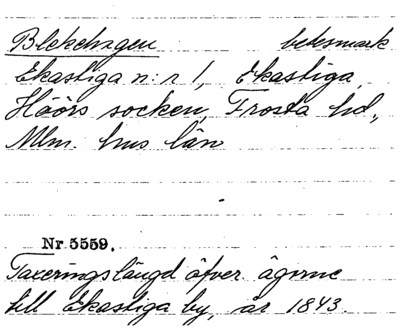 Blekehagen betesmark
Ekastiga n:r 1, Ekastiga,
Höörs socken, Frosta hd.,
Mlm. hus län
Nr 5559.
Taxeringslängd öfver ägorne
till Ekastiga by, år 1843.